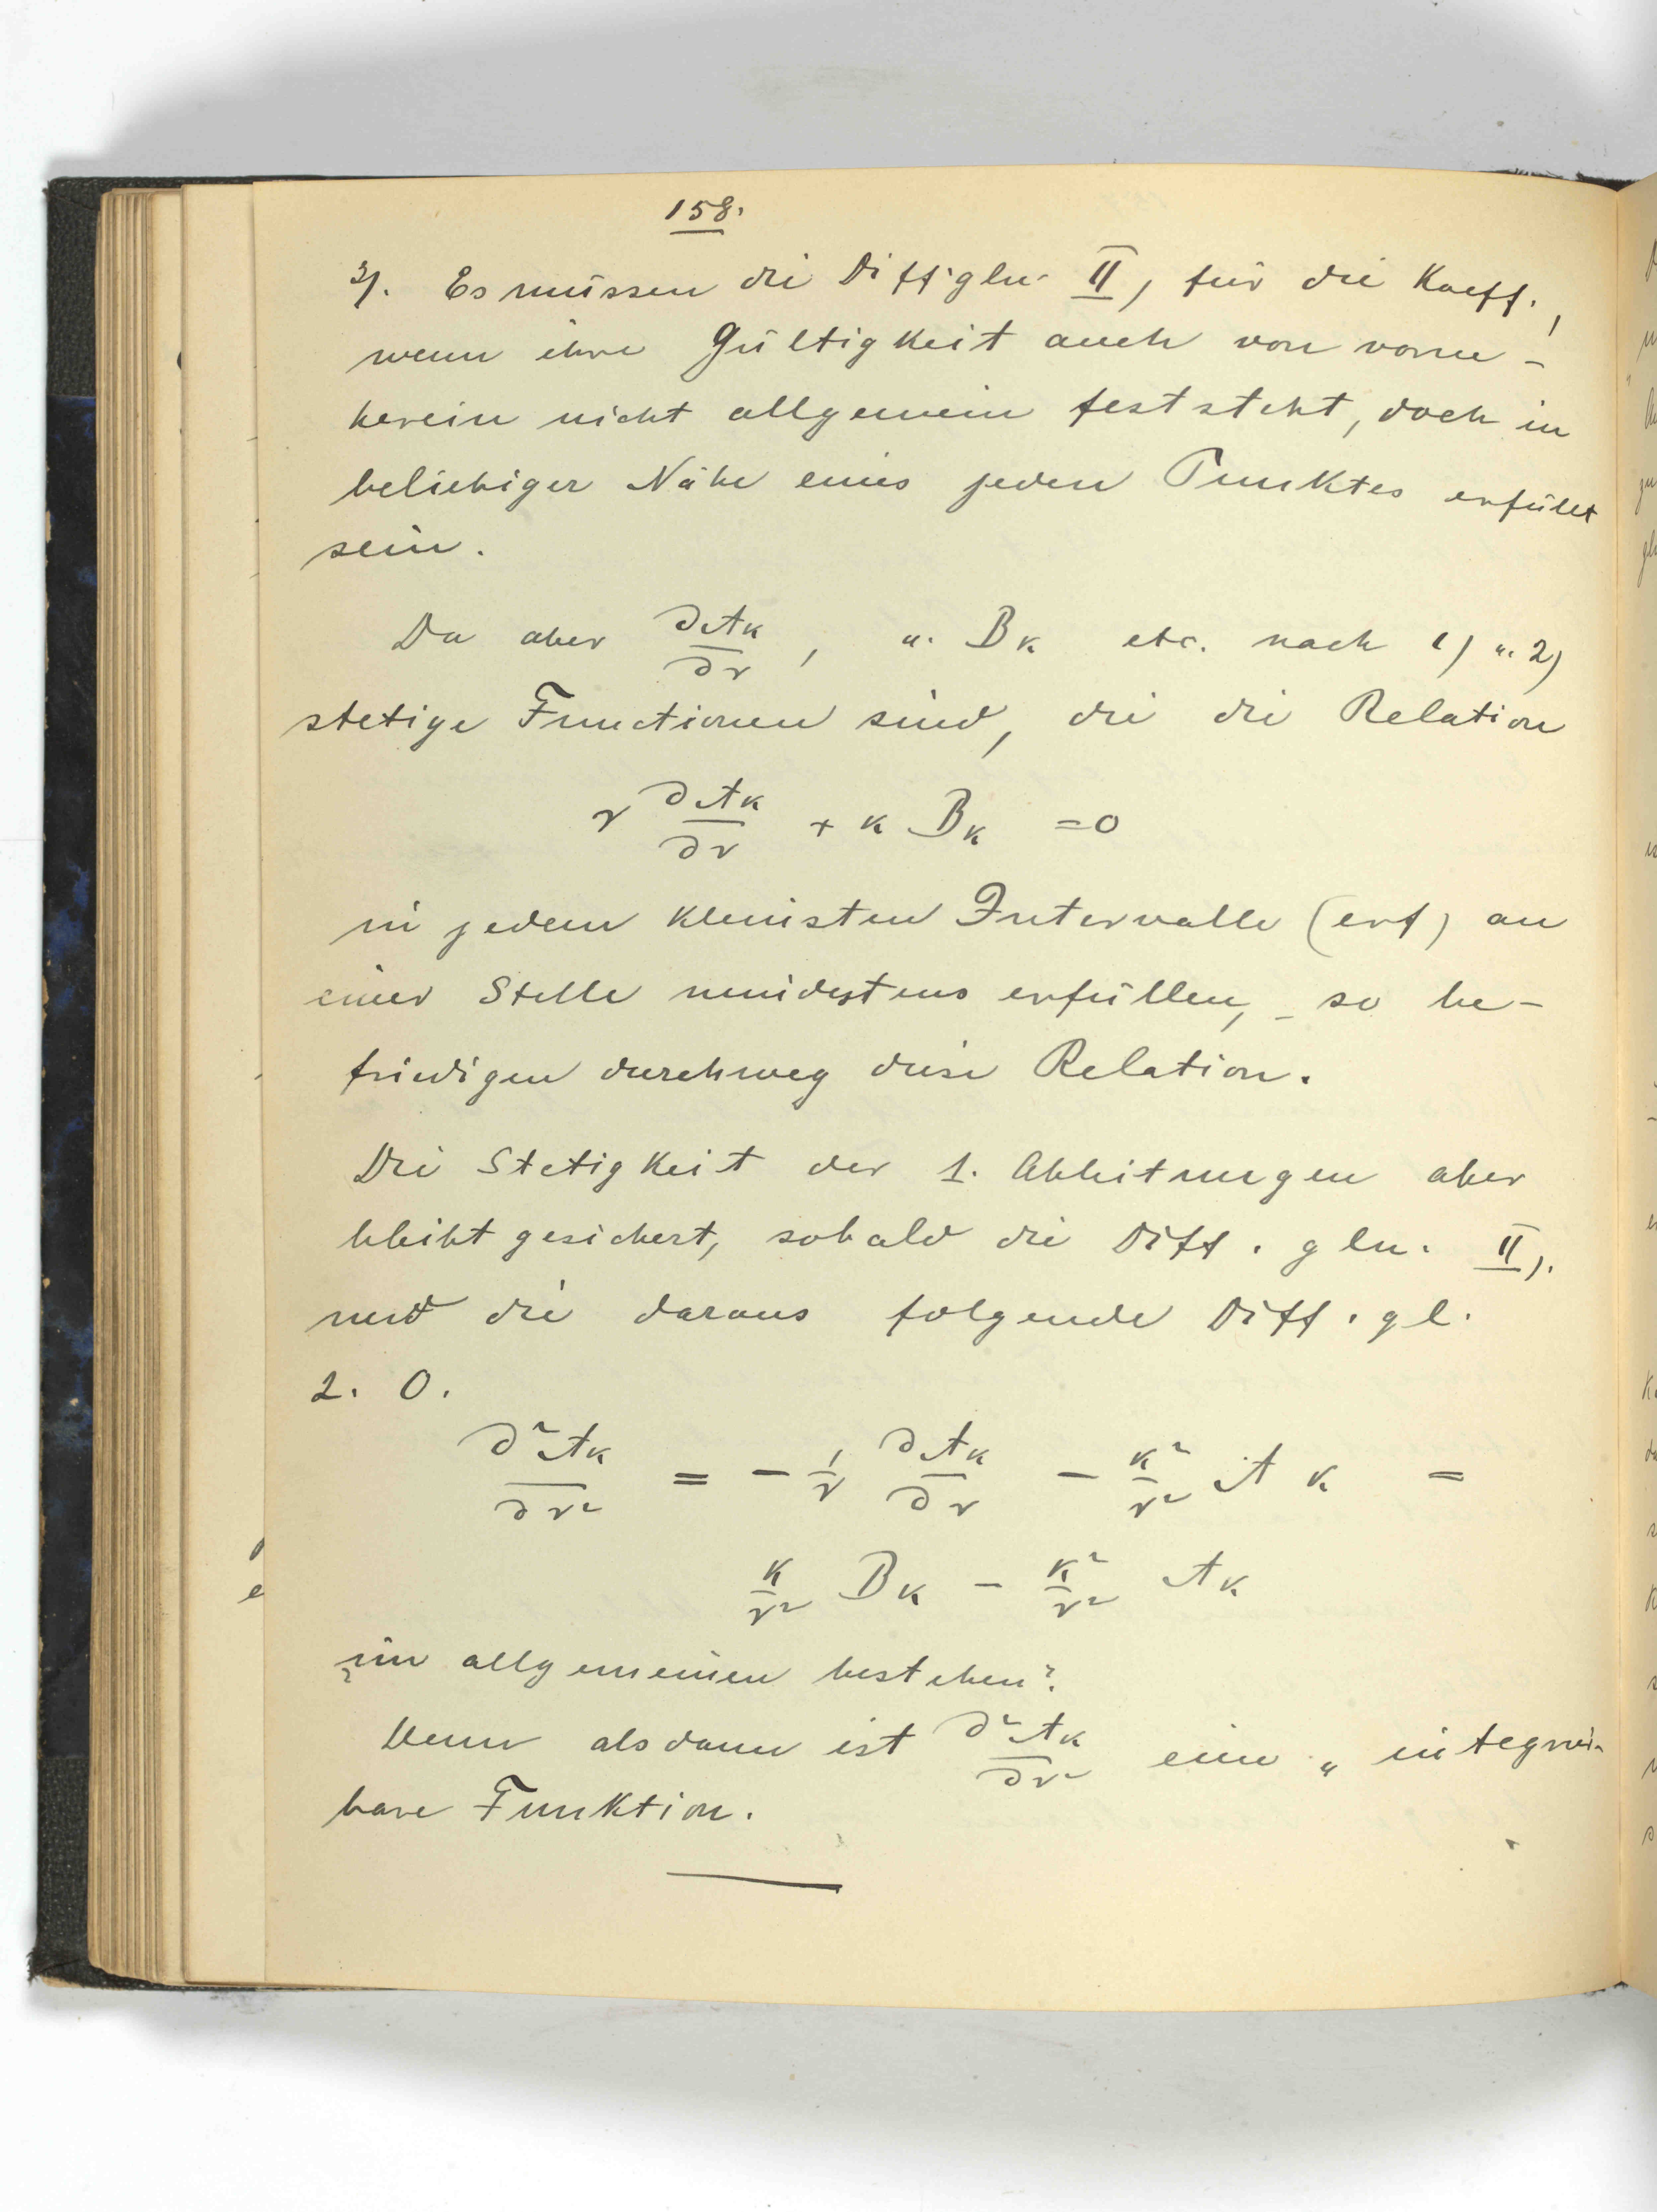 158.
3). Es müssen die Diff'gln. II) für die Koeff.,
wenn ihre Gültigkeit auch von vorne-
herein nicht allgemein feststeht, doch in
beliebiger Nähe eines jeden Punktes erfüllt
sein.
Da aber ∂Ak/∂r, u. Bk etc. nach 1) u. 2)
stetige Functionen sind, die die Relation
r ∂Ak/∂r + k Bk = 0
in jedem kleinsten Intervalle (erf) an
einer Stelle mindestens erfüllen, – so be-
friedigen durchweg diese Relation.
Die Stetigkeit der 1. Ableitungen aber
bleibt gesichert, sobald die Diff. gln. II).
und die daraus folgende Diff. gl.
2. O.
∂²Ak/∂r² = – 1/r ∂Ak/∂r – k²/r² Ak =
k/r² Bk – k²/r² Ak
im allgemeinen bestehen?
Denn alsdann ist ∂²Ak/∂r² eine " integrir-
bare Funktion.